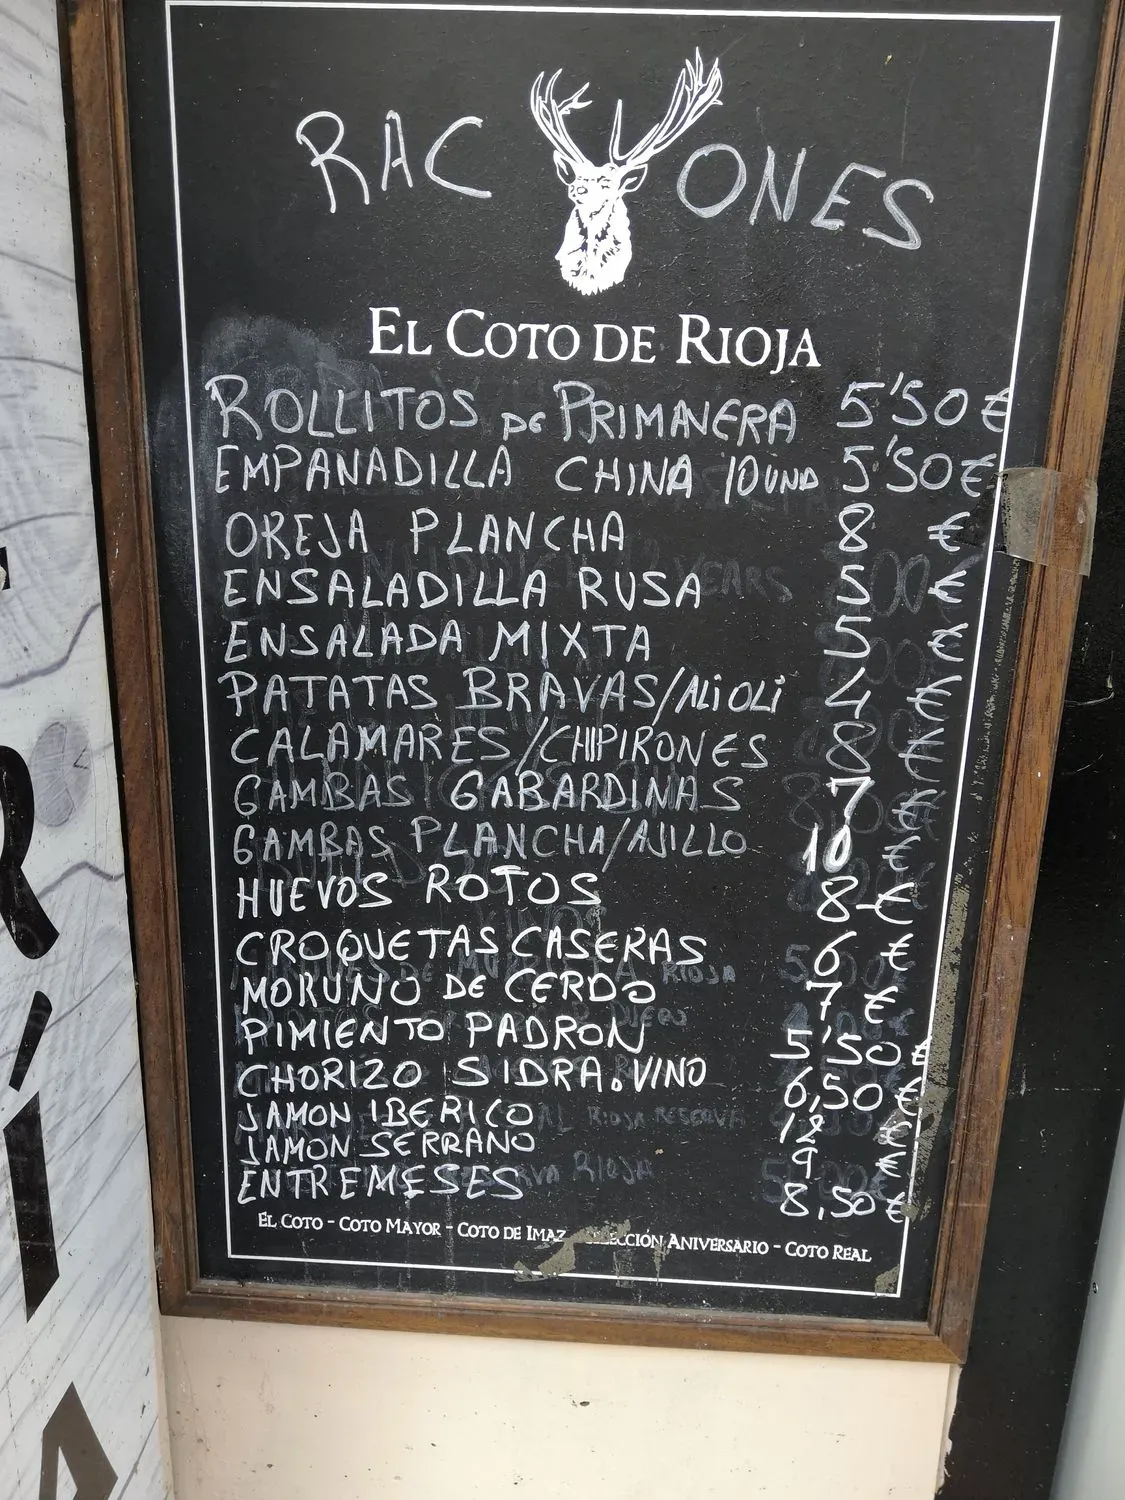 RAC ONES
EL COTO DE RIOJA
ROLLITOS DE PRIMANERA 5'50 €
EMPANADILLA CHINA 10UND 5'50 €
OREJA PLANCHA 8 €
ENSALADILLA RUSA 5 €
ENSALADA MIXTA 5 €
PATATAS BRAVAS/ALiOLi 4 €
CALAMARES/CHIPIRONES 8 €
GAMBAS GABARDINAS 7 €
GAMBAS PLANCHA/AJILLO 10 €
HUEVOS ROTOS 8 €
CROQUETAS CASERAS 6 €
MORUNO DE CERDO 7 €
PIMIENTO PADRON 5'50 €
CHORIZO SIDRA.VINO 6,50 €
JAMON IBERICO 12 €
JAMON SERRANO 9 €
ENTREMESES 8,50 €
EL COTO - COTO MAYOR - COTO DE IMAZ - SELECCIÓN ANIVERSARIO - COTO REAL